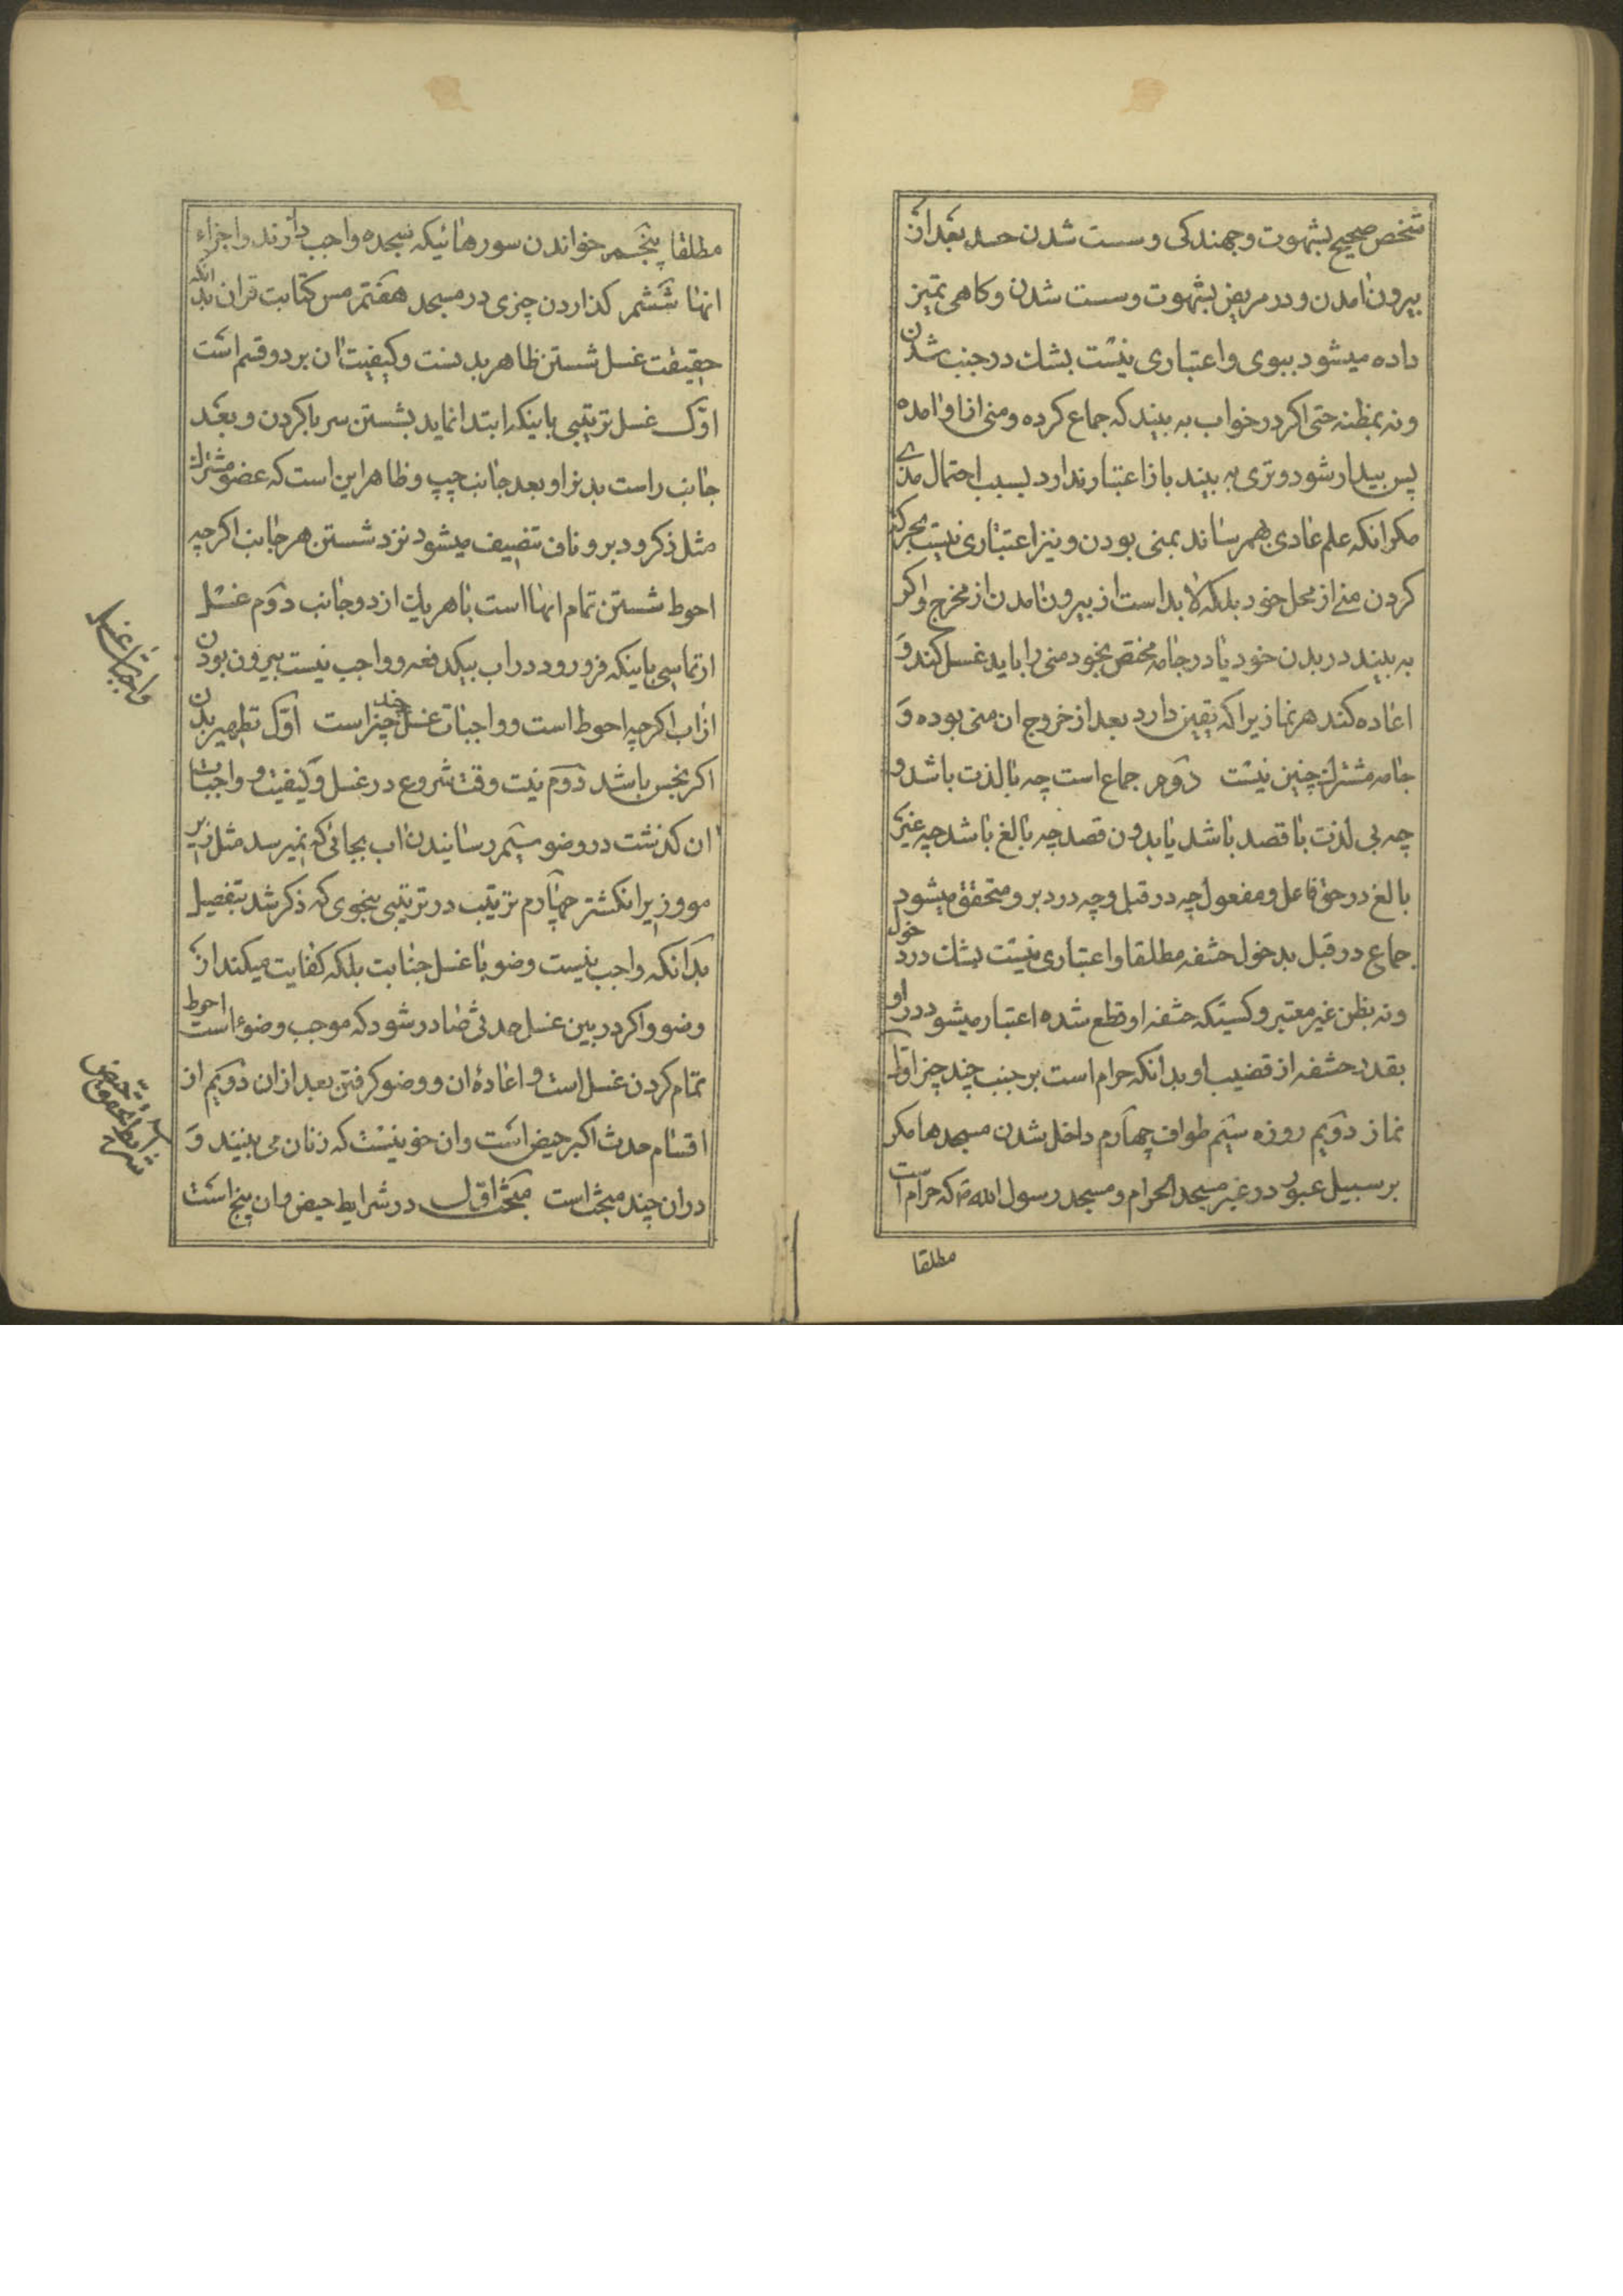 شخص صحیح بشهوت و جهندکی و سست شدن جسد بعد از
بیرون امدن و در مریض بشهوت و سست شدن و کاهی تمیز
داده میشود ببوی و اعتباری نیست بشك در جنب شدن
و نه بمظنه حتی اکر در خواب به بیند که جماع کرده و منی از او امده
پس بیدار شود و تری به بیند باز اعتبار ندارد بسبب احتمال مذی
مکر انکه علم عادی بهمرساند بمنی بودن و نیز اعتباری نیست بحرکت
کردن منی از محل خود بلکه لا بد است از بیرون امدن از مخرج و اکر
به بیند در بدن خود یا در جامه مختص بخود منی را باید غسل کند و
اعاده کند هر نماز یرا که یقین دارد بعد از خروج ان منی بوده و
جامه مشترك چنین نیست دوم جماع است چه با لذت باشد و
چه بی لذت با قصد باشد یا بدون قصد چه بالغ باشد چه غیر
بالغ در حق فاعل و مفعول چه در قبل و چه در دبر و متحقق میشود
جماع در قبل بدخول حشفه مطلقا و اعتباری نیست بشك در دخول
و نه بظن غیر معتبر و کسیکه حشفه او قطع شده اعتبار میشود در او
بقدر حشفه از قضیب او بدانکه حرام است بر جنب چند چیز اول
نماز دویم روزه سیم طواف چهارم داخل شدن مسجدها مکر
بر سبیل عبور در غیر مسجد الحرام و مسجد رسول الله ص که حرام است
مطلقا
مطلقا پنجم خواندن سورهائیکه سجده واجب دارند و اجزاء
انها ششم کذاردن چیزی در مسجد هفتم مس کتابت قران بدانکه
حقیقت غسل شستن ظاهر بدنست و کیفیت ان بر دو قسم است
اول غسل ترتیبی باینکه ابتدا نماید بشستن سر با کردن و بعد
جانب راست بدن را و بعد جانب چپ و ظاهر این است که عضو مشترك
مثل ذکر و دبر و ناف تنصیف میشود نزد شستن هر جانب اکرچه
احوط شستن تمام انها است با هر یك از دو جانب دوم غسل
ارتماسی باینکه فرو رود در اب بیکدفعه و واجب نیست بیرون بودن
از اب اکرچه احوط است و واجبات غسل چند چیز است اول تطهیر بدن
اکر نجس باشد دوم نیت وقت شروع در غسل و کیفیت و واجبات
ان کذشت در وضو سیم رسانیدن اب بجائی که نمیرسد مثل زیر
مو و زیر انکشتر چهارم ترتیب در ترتیبی بنحوی که ذکر شد بتفصیل
بدانکه واجب نیست وضو با غسل جنابت بلکه کفایت میکند از
وضو و اکر در بین غسل حدثی صادر شود که موجب وضوء است احوط
تمام کردن غسل است و اعادهٔ ان و وضو کرفتن بعد از ان دویم از
اقسام حدث اکبر حیض است و ان خونیست که زنان می بینند و
دران چند مبحث است مبحث اول در شرایط حیض و ان پنج است
واجبات غسل
شرایط تحقق حیض